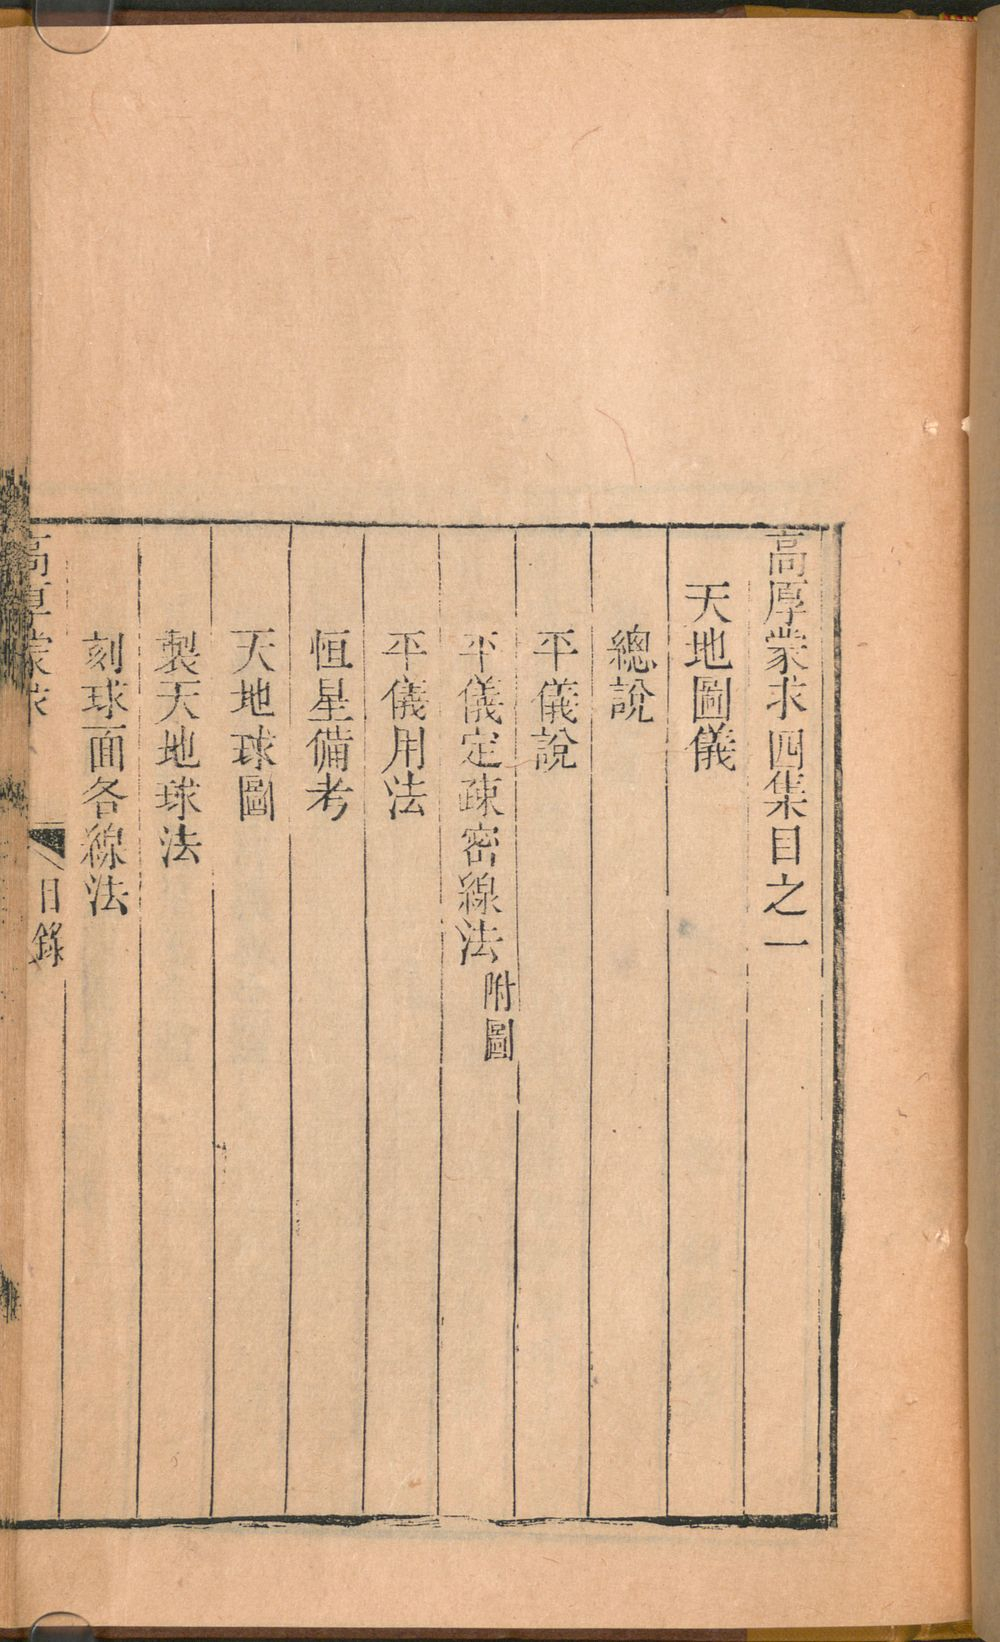 高厚蒙求四集目之一
天地圖儀
總說
平儀說
平儀定疎密線法附圖
平儀用法
恒星備考
天地球圖
製天地球法
刻球面各線法
高厚蒙求 目錄